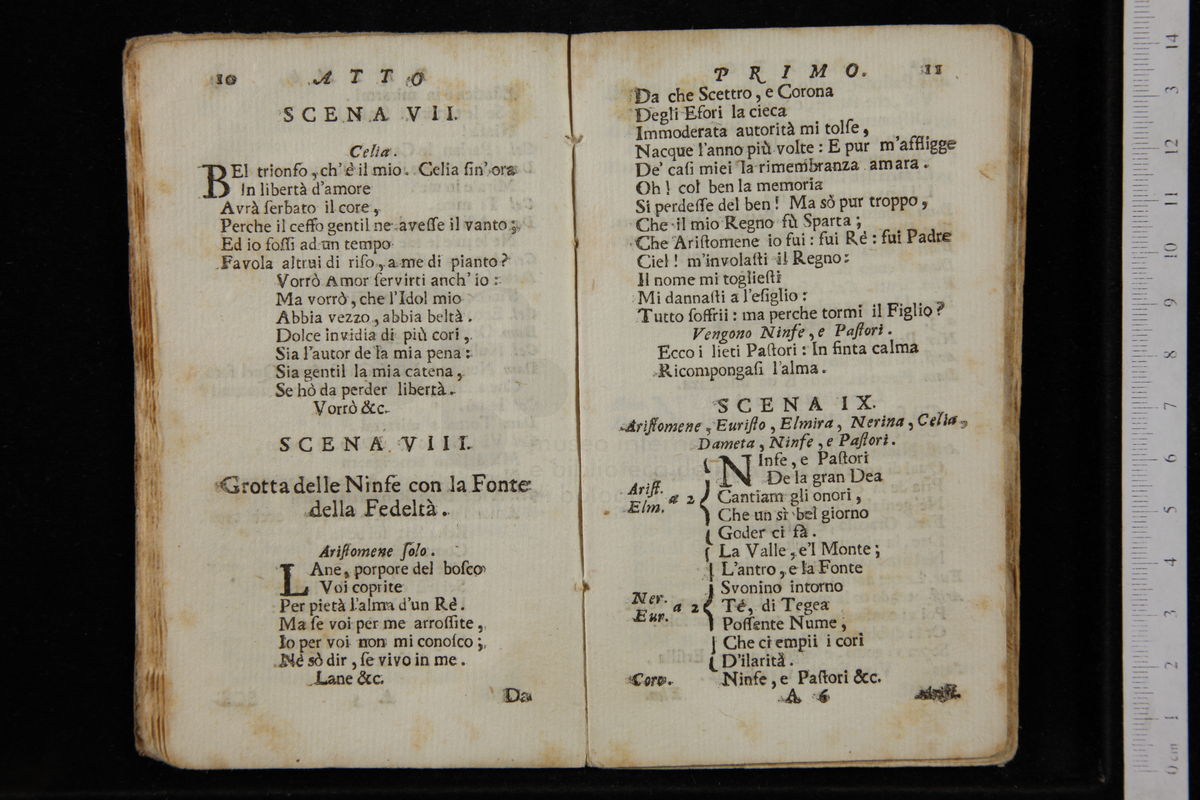 10 ATTO
SCENA VII.
Celia.
BEl trionfo, ch' è il mio. Celia ſin' ora
In libertà d'amore
Avrà ſerbato il core,
Perche il ceffo gentil ne aveſſe il vanto;
Ed io foſſi ad un tempo
Favola altrui di riſo, a me di pianto?
Vorrò Amor ſervirti anch' io:
Ma vorrò, che l'Idol mio
Abbia vezzo, abbia beltà.
Dolce invidia di più cori,
Sia l'autor de la mia pena:
Sia gentil la mia catena,
Se hò da perder libertà.
Vorrò &c.
SCENA VIII.
Grotta delle Ninfe con la Fonte
della Fedeltà.
Ariſtomene ſolo.
LAne, porpore del boſco
Voi coprite
Per pietà l'alma d'un Rè.
Ma ſe voi per me arroſſite,
Io per voi non mi conoſco;
Nè sò dir, ſe vivo in me.
Lane &c.
Da
PRIMO. 11
Da che Scettro, e Corona
Degli Efori la cieca
Immoderata autorità mi tolſe,
Nacque l'anno più volte: E pur m'affligge
De' caſi miei la rimembranza amara.
Oh! col ben la memoria
Si perdeſſe del ben! Ma sò pur troppo,
Che il mio Regno fù Sparta;
Che Ariſtomene io fui: fui Rè: fui Padre
Ciel! m'involaſti il Regno:
Il nome mi toglieſti
Mi dannaſti a l'eſiglio:
Tutto ſoffrii: ma perche tormi il Figlio?
Vengono Ninfe, e Paſtori.
Ecco i lieti Paſtori: In finta calma
Ricompongaſi l'alma.
SCENA IX.
Ariſtomene, Euriſto, Elmira, Nerina, Celia,
Dameta, Ninfe, e Paſtori.
NInfe, e Paſtori
De la gran Dea
Ariſt. Elm. a 2 Cantiam gli onori,
Che un sì bel giorno
Goder ci fà.
La Valle, e'l Monte;
L'antro, e la Fonte
Svonino intorno
Ner. Eur. a 2 Tè, di Tegea
Poſſente Nume,
Che ci empii i cori
D'ilarità.
Coro. Ninfe, e Paſtori &c.
A 6